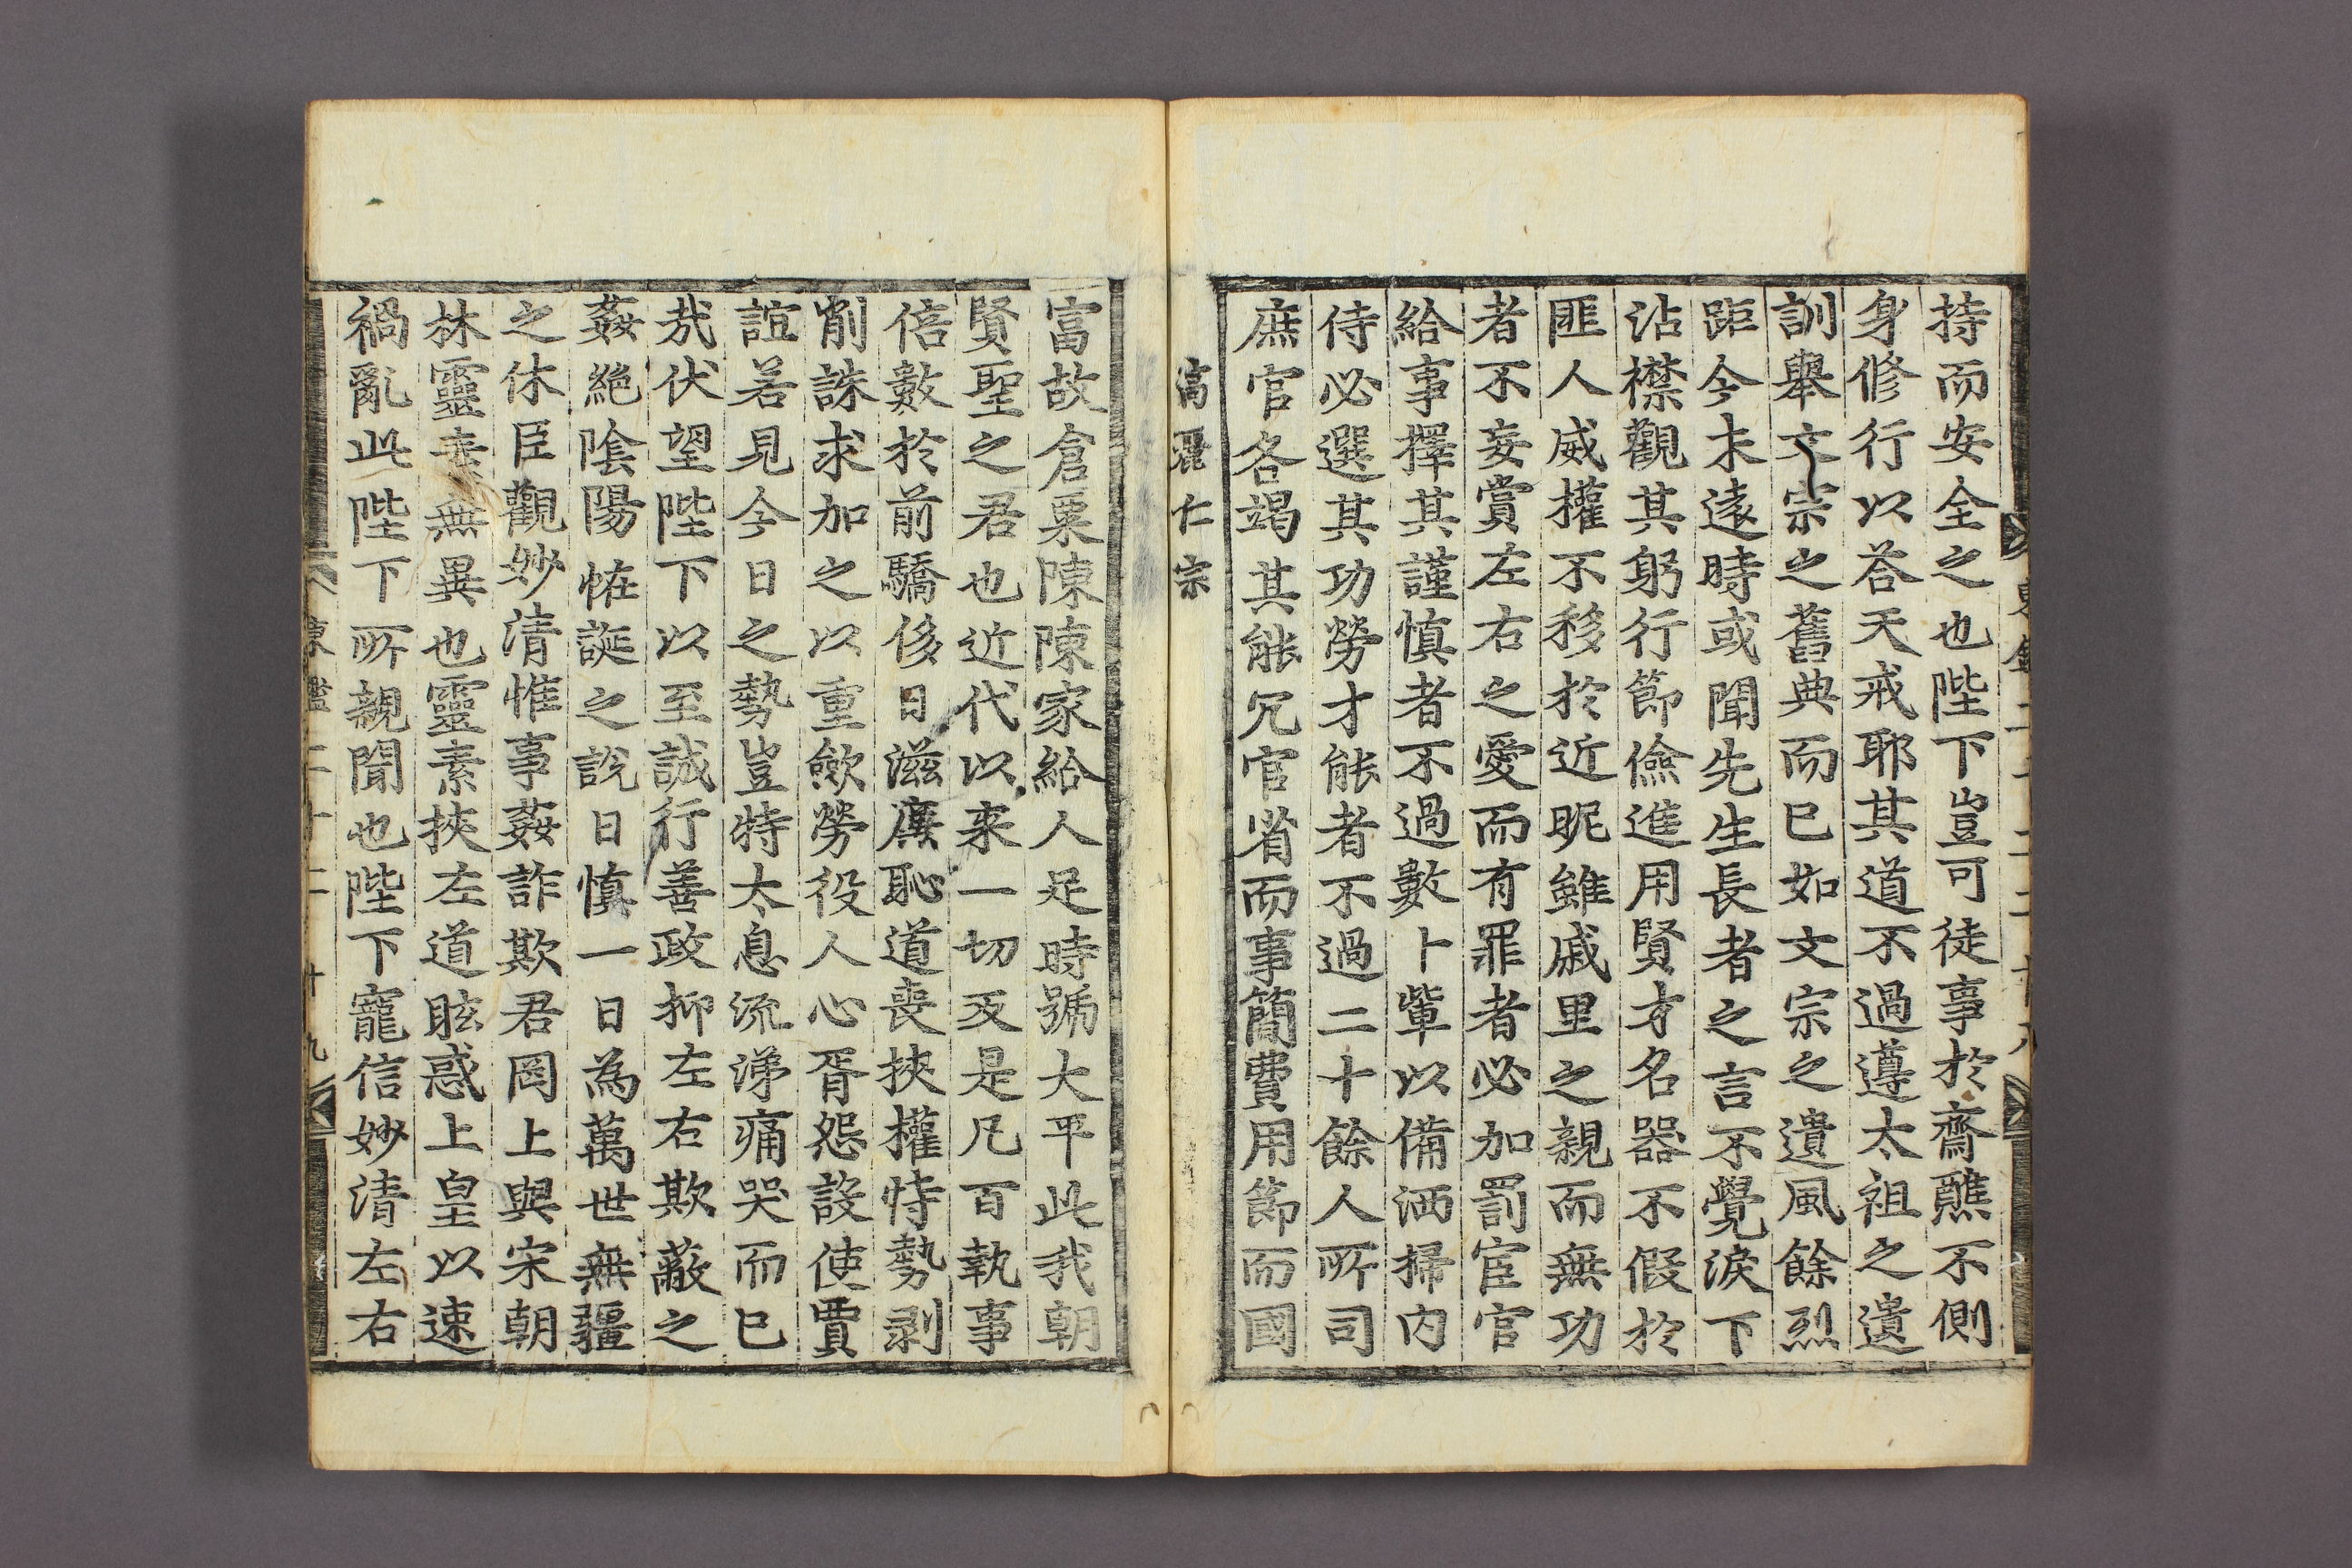 持而安全之也陛下豈可徒事於齋醮不側
身修行以荅天戒耶其道不過遵太祖之遺
訓舉文宗之舊典而已如文宗之遺風餘烈
距今未遠時或聞先生長者之言不覺淚下
沾襟觀其躬行節儉進用賢才名器不假於
匪人威權不移於近昵雖戚里之親而無功
者不妄賞左右之愛而有罪者必加罰宦官
給事擇其謹慎者不過數卜軰以備洒掃内
侍必選其功勞才能者不過二十餘人所司
庶官各竭其能冗官省而事簡費用節而國
高麗仁宗
富故倉粟陳陳家給人足時號大平此我朝
賢聖之君也近代以来一切反是凡百執事
倍數於前驕侈日滋廉恥道喪挾權恃勢剥
削誅求加之以重歛勞役人心胥怨設使賈
誼若見今日之勢豈特太息流涕痛哭而已
㢤伏望陛下以至誠行善政抑左右欺蔽之
姦絶陰陽恠誕之說日慎一日為萬世無疆
之休臣觀妙清惟事姦詐欺君罔上與宋朝
林靈素無異也靈素挾左道眩惑上皇以速
禍亂此陛下所親聞也陛下寵信妙清左右
東鑑二十二 十九